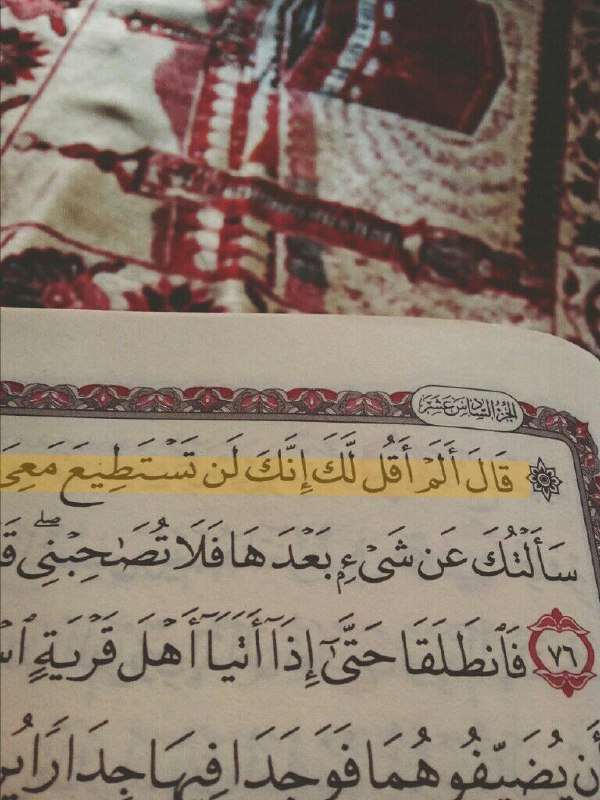 الجزء السادس عشر
۞ قَالَ أَلَمْ أَقُل لَّكَ إِنَّكَ لَن تَسْتَطِيعَ مَعِيَ
سَأَلْتُكَ عَن شَىْءٍۭ بَعْدَهَا فَلَا تُصَٰحِبْنِى ۖ
٧٦ فَٱنطَلَقَا حَتَّىٰٓ إِذَآ أَتَيَآ أَهْلَ قَرْيَةٍ
أَن يُضَيِّفُوهُمَا فَوَجَدَا فِيهَا جِدَارًا